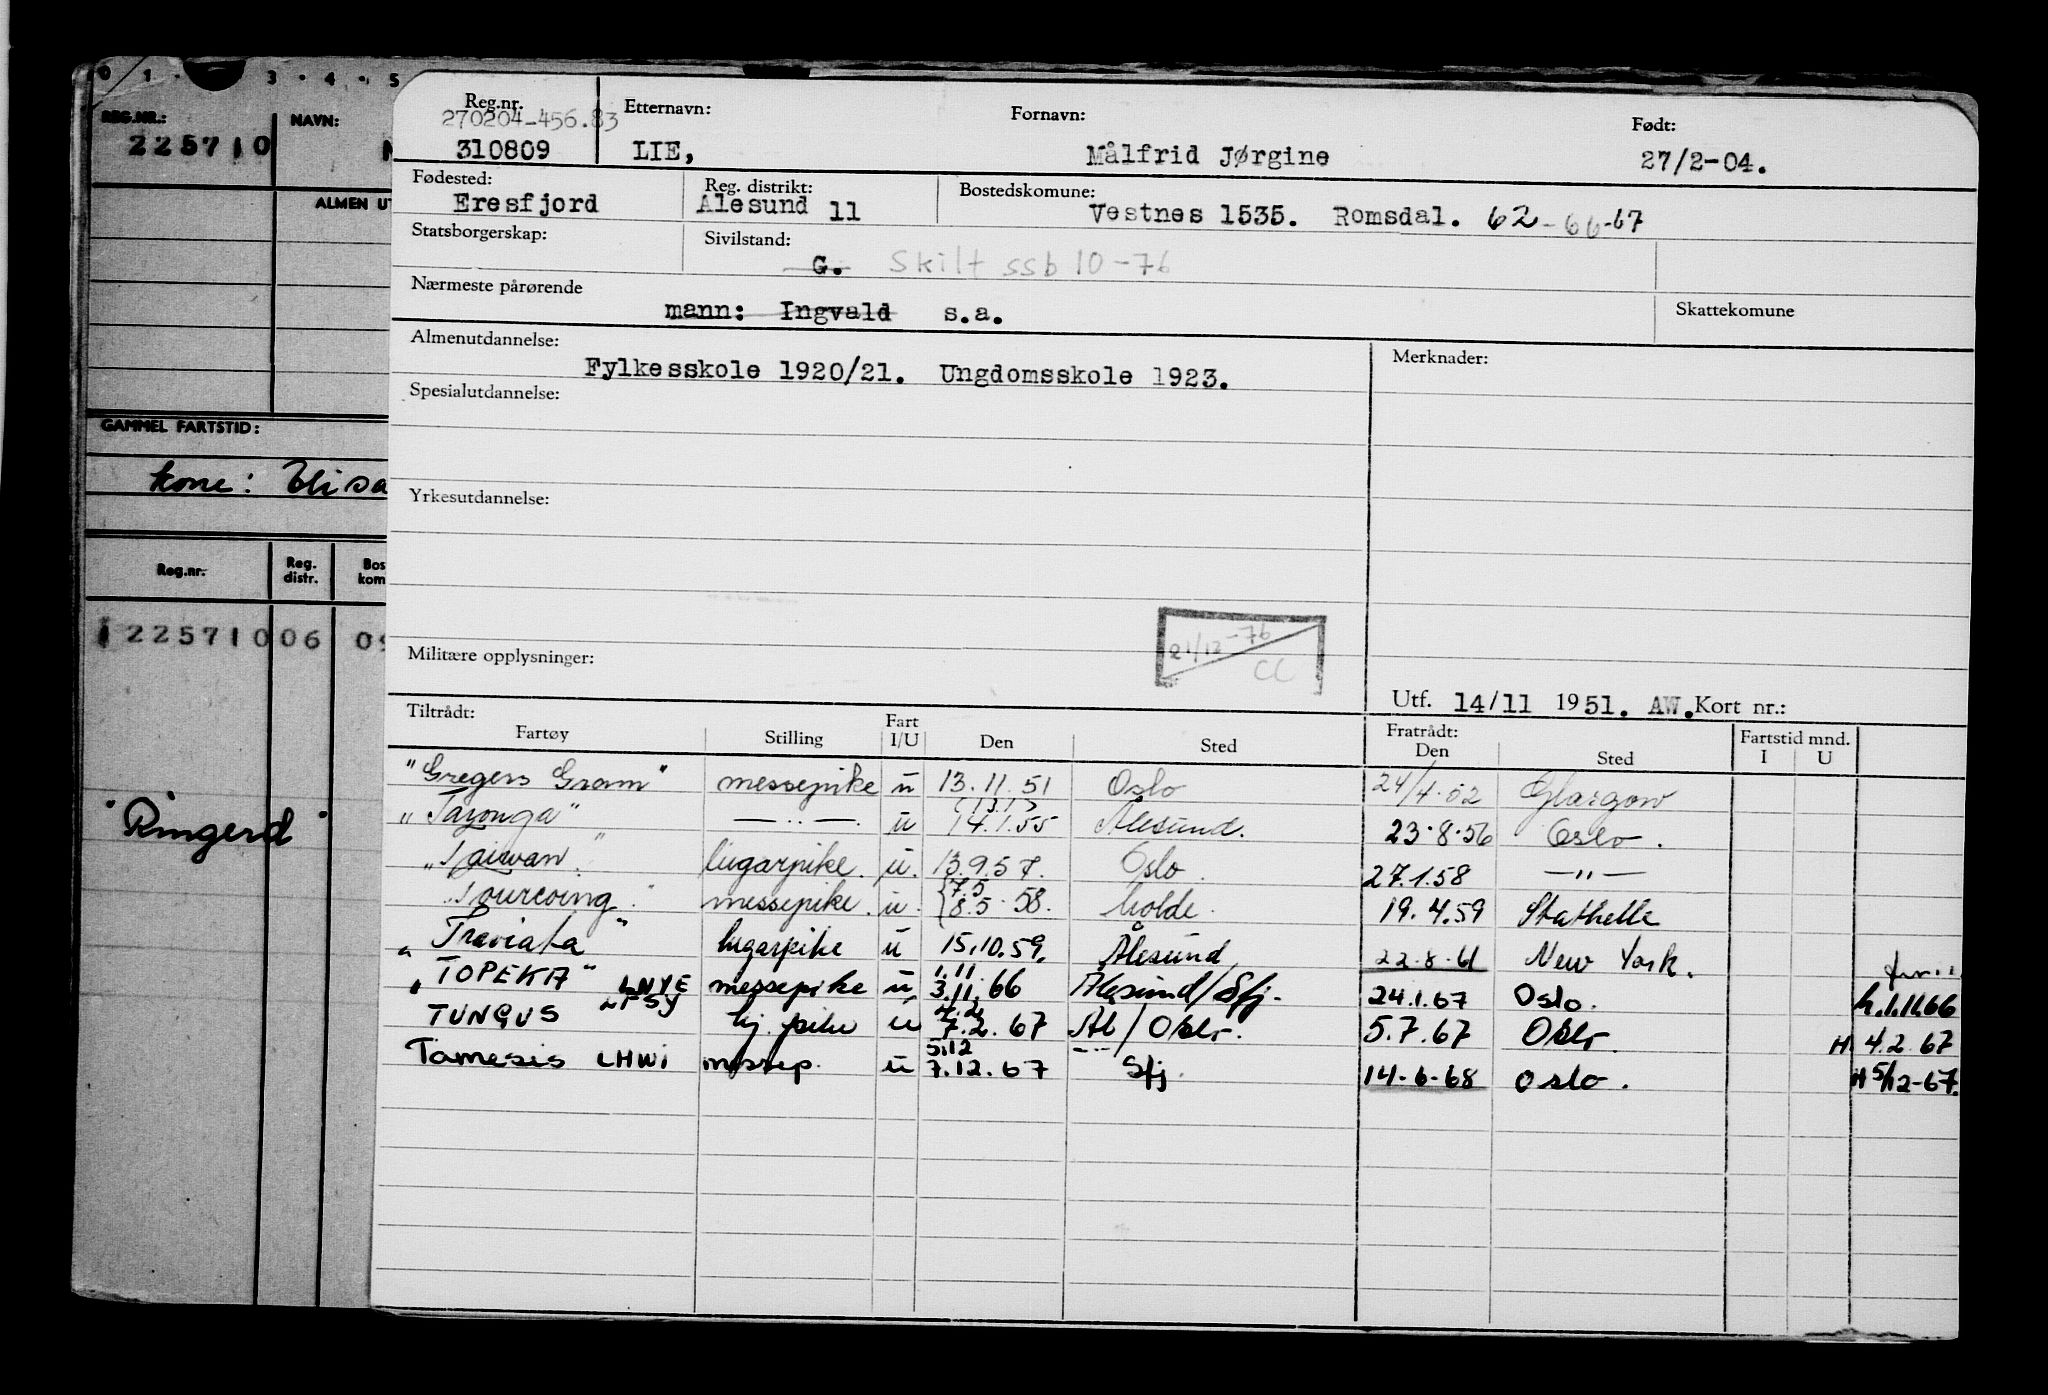 0 1 · 3 · 4 · 5
REG.NR.: NAVN:
225710
ALMEN UT
GAMMEL FARTSTID:
kone: Elisa
Reg.nr. Reg. distr. Bos kom
225710 06 09
"Ringerd"
Reg.nr. Etternavn: Fornavn: Født:
270204-456.83
310809 LIE, Målfrid Jørgine 27/2-04.
Fødested: Reg. distrikt: Bostedskomune:
Eresfjord Ålesund 11 Vestnes 1535. Romsdal. 62-66-67
Statsborgerskap: Sivilstand:
G. Skilt ssb 10-76
Nærmeste pårørende Skattekomune
mann: Ingvald s.a.
Almenutdannelse: Merknader:
Fylkesskole 1920/21. Ungdomsskole 1923.
Spesialutdannelse:
Yrkesutdannelse:
21/12-76
CC
Militære opplysninger:
Utf. 14/11 1951. AW. Kort nr.:
Tiltrådt: Fart Fratrådt: Fartstid mnd.
Fartøy Stilling I/U Den Sted Den Sted I U
"Gregers Gram" messepike u 13.11.51 Oslo 24/4.52 Glasgow
"Taronga" —..—. u 14.1.55 Ålesund. 23.8.56 Oslo.
"Taiwan" lugarpike. u. 13.9.57. Oslo. 27.1.58 —"—
7.5
"Tourcoing" messepike. u. 8.5.58. Molde. 19.4.59 Stathelle
"Traviata" lugarpike u 15.10.59. Ålesund 22.8.61 New York.
1.11
"TOPEKA" LNVE messepike u 3.11.66 Ålesund/Sfj. 24.1.67 Oslo. h.1.11.66
4.2
TUNGUS LFSY lg. pike u 7.2.67 Ål/Oslo. 5.7.67 Oslo H. 4.2.67
5.12
Tamesis LHWI messep. u 7.12.67 Sfj 14-6-68 Oslo. H 5/12-67.